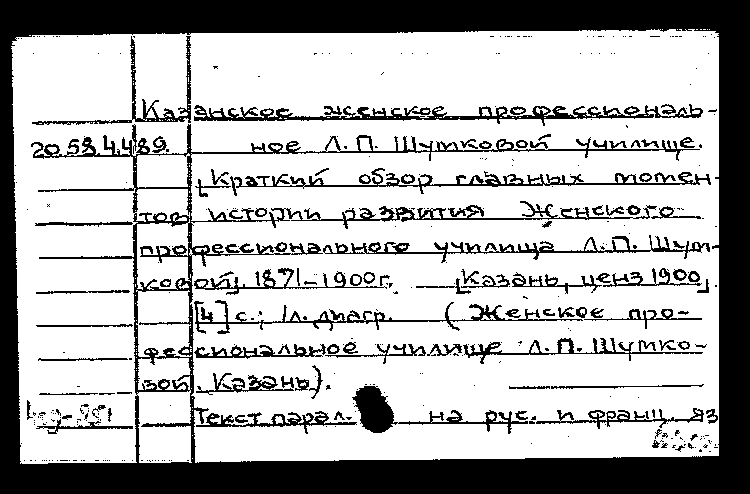 Казанское женское профессиональ-
20.58.4.489. ное Л.П. Шумковой училище.
[Краткий обзор главных момен-
тов истории развития Женского
профессионального училища Л.П. Шум-
ковой]. 1871-1900г. [Казань, ценз 1900].
[4] с.; 1л. диагр. (Женское про-
фессиональное училище Л.П. Шумко-
вой. Казань).
Текст парал. на рус. и франц. яз